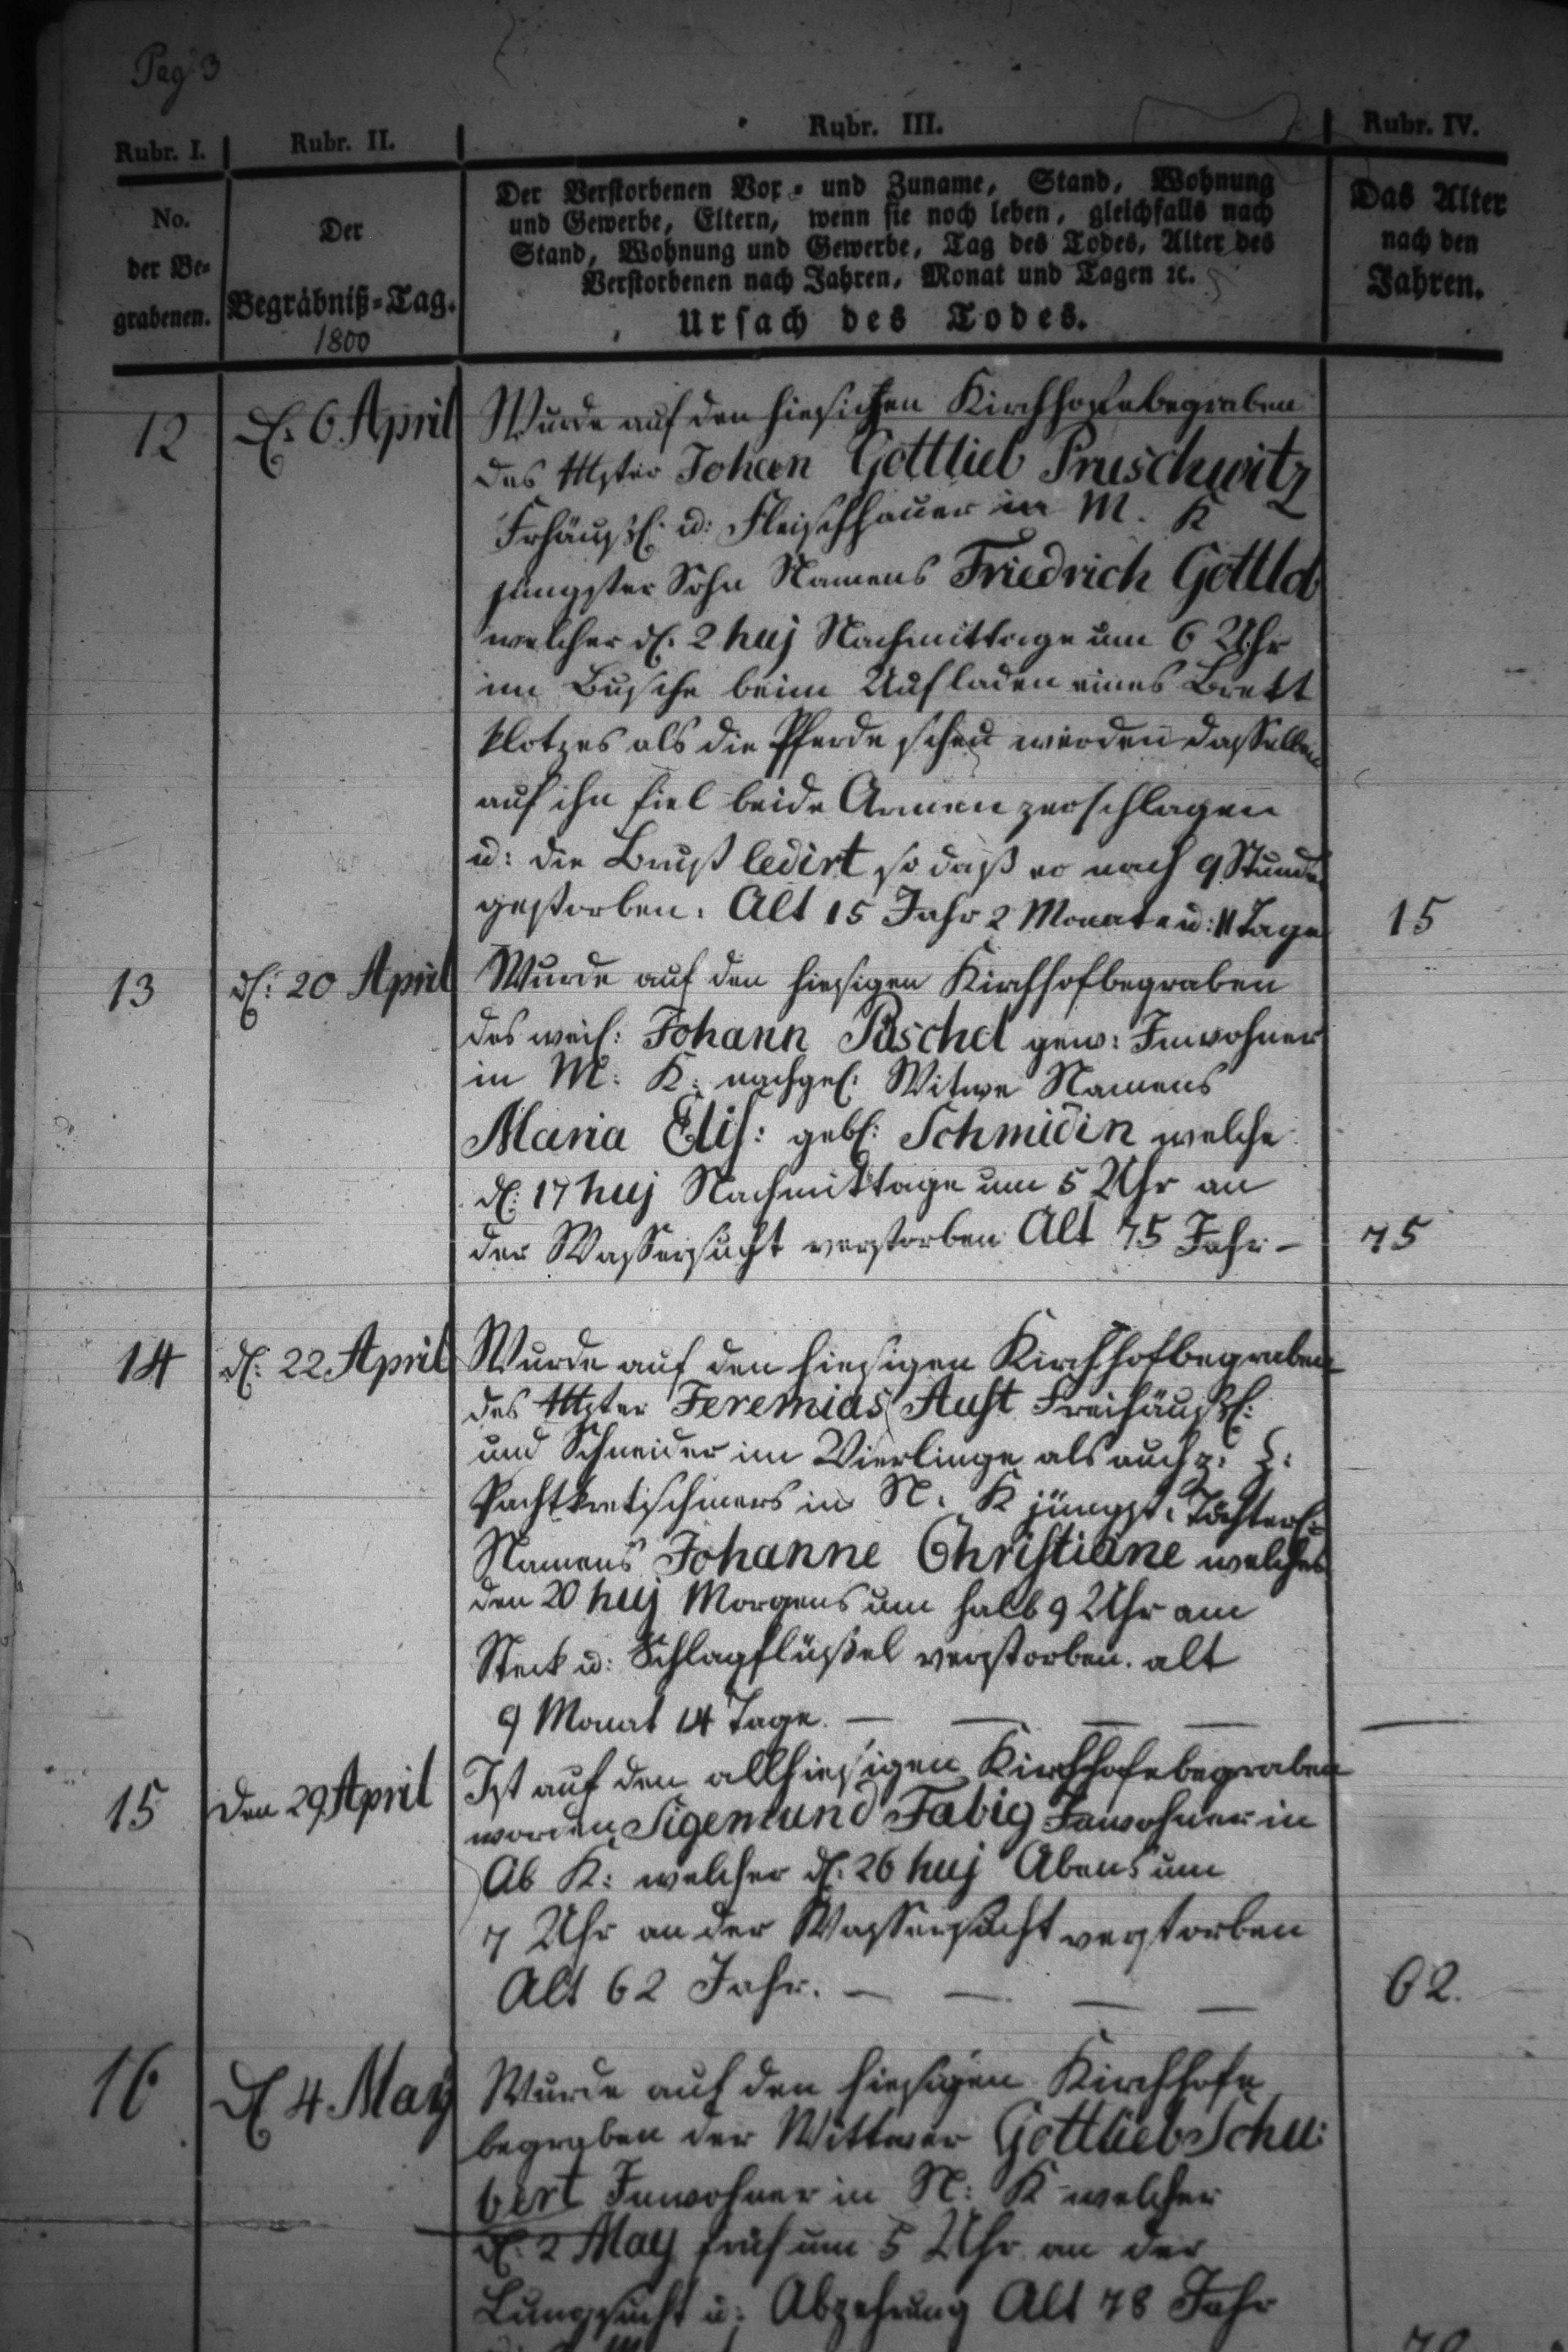 Pag 3
Rubr. I.
Rubr. II.
Rubr. III.
Rubr. IV.
No.
der Be-
grabenen.
Der
Begräbniß-Tag.
1800
Der Verstorbenen Vor- und Zuname, Stand, Wohnung
und Gewerbe, Eltern, wenn sie noch leben, gleichfalls nach
Stand, Wohnung und Gewerbe, Tag des Todes, Alter des
Verstorbenen nach Jahren, Monat und Tagen ꝛc.
Ursach des Todes.
Das Alter
nach den
Jahren.
12
d. 6 April
Wurde auf den hiesichen Kirchhofe begraben
des Mster Johann Gottlieb Pruschwitz
Frhäusl: u: Fleischhauer in M. K
jüngster Sohn Namens Friedrich Gottlob
welcher d. 2 huj Nachmittage um 6 Uhr
im Busche beim Aufladen eines Brett
klotzes als die Pferde scheu werden dasselbe
auf ihn fiel beide Armen zerschlagen
u: die Brust ledirt so daß er nach 9 Stunden
gestorben. Alt 15 Jahr 2 Monate u: 11 Tage
15
13
d: 20 April
Wurde auf den hiesigen Kirchhof begraben
des weil: Johann Püschel gew: Inwohner
in M: K: nachgel: Witwe Namens
Maria Elis: gebl: Schmidin welche
d: 17 huj Nachmittage um 5 Uhr an
der Wassersucht verstorben Alt 75 Jahr -
75
14
d: 22 April
Wurde auf den hiesigen Kirchhof begraben
des Mster Jeremias Aust Freihäusl:
und Schneider im Vierlinge als auch z: Z:
Pachtkretschmers in N. K jüngst. Töchterl:
Namens Johanne Christiane welches
den 20 huj Morgens um halb 9 Uhr am
Steck u: Schlagflüßel verstorben. alt
9 Monat 14 Tage. — — — —
—
15
den 29 April
Ist auf den allhiesigen Kirchhofe begraben
worden Sigemund Fabig Inwohner in
Ob K: welcher d. 26 huj Abens um
7 Uhr an der Wassersucht verstorben
Alt 62 Jahr. — — — —
62.
16
d 4 May
Wurde auf den hiesigen Kirchhofe
begraben der Wittwer Gottlieb Schu:
bert Inwohner in N: K welcher
d. 2 May früh um 5 Uhr an der
Lungsucht u: Abzehrung Alt 78 Jahr